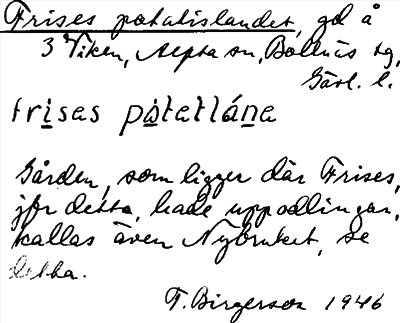 Frises potatislandet, gd å
3 Viken, Alfta sn, Bollnäs tg,
Gävl. l.
frises po̱tatlána
Gården, som ligger där Frises,
jfr detta, hade uppodlingar,
kallas även Nybruket, se
detta.
F. Birgerson 1946